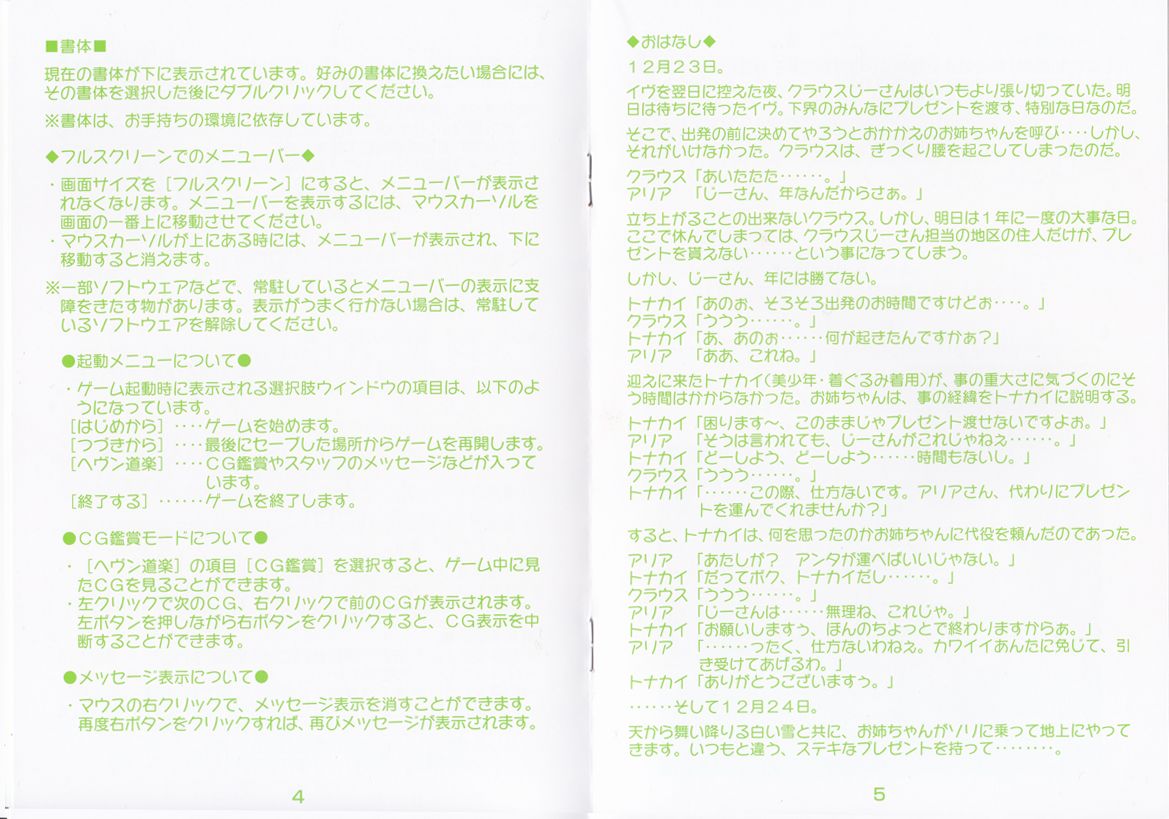 ■書体■
現在の書体が下に表示されています。好みの書体に換えたい場合には、
その書体を選択した後にダブルクリックしてください。
※書体は、お手持ちの環境に依存しています。
◆フルスクリーンでのメニューバー◆
・画面サイズを［フルスクリーン］にすると、メニューバーが表示さ
れなくなります。メニューバーを表示するには、マウスカーソルを
画面の一番上に移動させてください。
・マウスカーソルが上にある時には、メニューバーが表示され、下に
移動すると消えます。
※一部ソフトウェアなどで、常駐しているとメニューバーの表示に支
障をきたす物があります。表示がうまく行かない場合は、常駐して
いるソフトウェアを解除してください。
●起動メニューについて●
・ゲーム起動時に表示される選択肢ウインドウの項目は、以下のよ
うになっています。
［はじめから］‥‥ゲームを始めます。
［つづきから］‥‥最後にセーブした場所からゲームを再開します。
［ヘヴン道楽］‥‥ＣＧ鑑賞やスタッフのメッセージなどが入って
います。
［終了する］‥‥‥ゲームを終了します。
●ＣＧ鑑賞モードについて●
・［ヘヴン道楽］の項目［ＣＧ鑑賞］を選択すると、ゲーム中に見
たＣＧを見ることができます。
・左クリックで次のＣＧ、右クリックで前のＣＧが表示されます。
左ボタンを押しながら右ボタンをクリックすると、ＣＧ表示を中
断することができます。
●メッセージ表示について●
・マウスの右クリックで、メッセージ表示を消すことができます。
再度右ボタンをクリックすれば、再びメッセージが表示されます。
4
◆おはなし◆
１２月２３日。
イヴを翌日に控えた夜、クラウスじーさんはいつもより張り切っていた。明
日は待ちに待ったイヴ。下界のみんなにプレゼントを渡す、特別な日なのだ。
そこで、出発の前に決めてやろうとおかかえのお姉ちゃんを呼び‥‥しかし、
それがいけなかった。クラウスは、ぎっくり腰を起こしてしまったのだ。
クラウス「あいたたた‥‥‥。」
アリア　「じーさん、年なんだからさぁ。」
立ち上がることの出来ないクラウス。しかし、明日は１年に一度の大事な日。
ここで休んでしまっては、クラウスじーさん担当の地区の住人だけが、プレ
ゼントを貰えない‥‥‥という事になってしまう。
しかし、じーさん、年には勝てない。
トナカイ「あのぉ、そろそろ出発のお時間ですけどぉ‥‥。」
クラウス「ううう‥‥‥。」
トナカイ「あ、あのぉ‥‥‥何が起きたんですかぁ？」
アリア　「ああ、これね。」
迎えに来たトナカイ（美少年・着ぐるみ着用）が、事の重大さに気づくのにそ
う時間はかからなかった。お姉ちゃんは、事の経緯をトナカイに説明する。
トナカイ「困ります～、このままじゃプレゼント渡せないですよぉ。」
アリア　「そうは言われても、じーさんがこれじゃねぇ‥‥‥。」
トナカイ「どーしよう、どーしよう‥‥‥時間もないし。」
クラウス「ううう‥‥‥。」
トナカイ「‥‥‥この際、仕方ないです。アリアさん、代わりにプレゼン
トを運んでくれませんか？」
すると、トナカイは、何を思ったのかお姉ちゃんに代役を頼んだのであった。
アリア　「あたしが？　アンタが運べばいいじゃない。」
トナカイ「だってボク、トナカイだし‥‥‥。」
クラウス「ううう‥‥‥。」
アリア　「じーさんは‥‥‥無理ね、これじゃ。」
トナカイ「お願いしますぅ、ほんのちょっとで終わりますからぁ。」
アリア　「‥‥‥ったく、仕方ないわねぇ。カワイイあんたに免じて、引
き受けてあげるわ。」
トナカイ「ありがとうございますぅ。」
‥‥‥そして１２月２４日。
天から舞い降りる白い雪と共に、お姉ちゃんがソリに乗って地上にやって
きます。いつもと違う、ステキなプレゼントを持って‥‥‥‥。
5